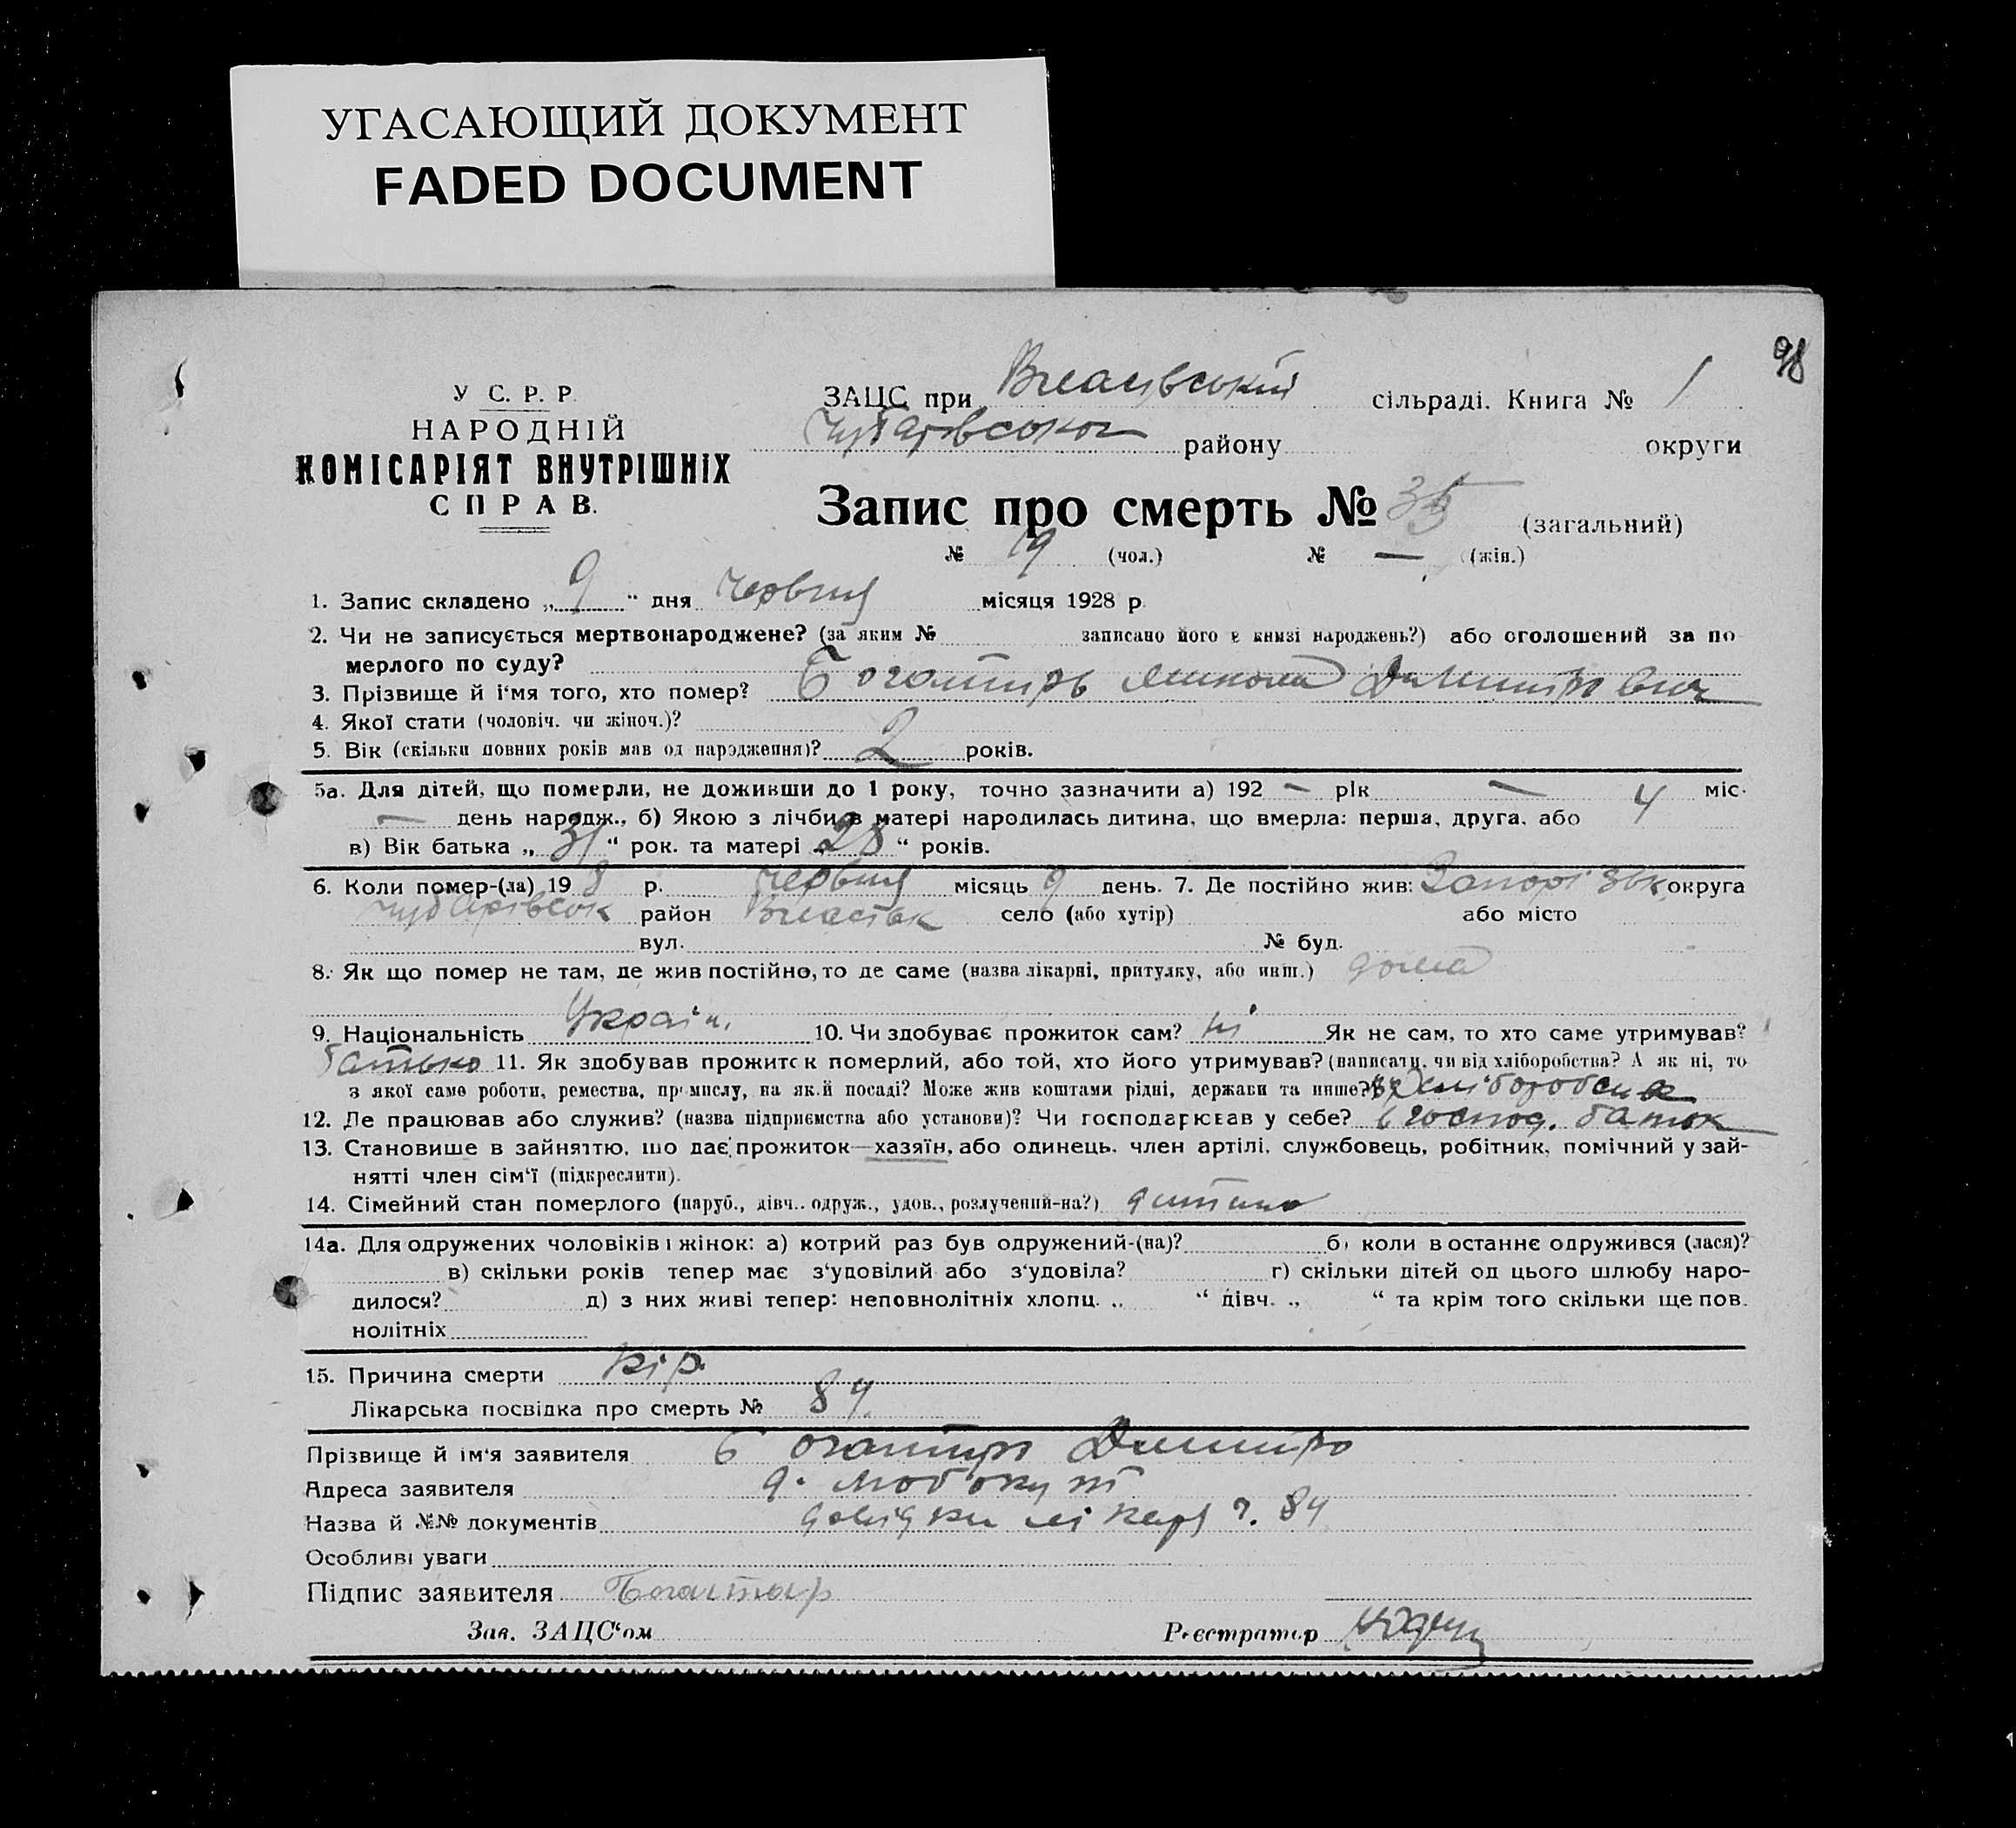 УГАСАЮЩИЙ ДОКУМЕНТ
FADED DOCUMENT
98
У С. Р. Р.
НАРОДНІЙ
КОМІСАРІЯТ ВНУТРІШНІХ
СПРАВ.
ЗАЦС при сільраді. Книга № 1
Чубарівського району округи
Запис про смерть № 35 (загальний)
№ 19 (чол.) № — (жін.)
1. Запис складено „ 9 “ дня червня місяця 1928 р.
2. Чи не записується мертвонароджене? (за яким № записано його в книзі народжень?) або оголошений за по
мерлого по суду?
3. Прізвище й і‘мя того, хто помер? Богатирь Микола Дмитрович
4. Якої стати (чоловіч. чи жіноч.)?
5. Вік (скільки повних років мав од народження)? 2 років.
5а. Для дітей, що померли, не доживши до 1 року, точно зазначити а) 192 — рік — міс.
— день народж., б) Якою з лічби в матері народилась дитина, що вмерла: перша, друга, або 4
в) Вік батька „ 31 “ рок. та матері „ 28 “ років.
6. Коли помер-(ла) 19 8 р. червня місяць 9 день. 7. Де постійно жив: Запорізьк округа
Чубарівськ район село (або хутір) або місто
вул. № буд.
8. Як що помер не там, де жив постійно, то де саме (назва лікарні, притулку, або инш.) дома
9. Національність Україн. 10. Чи здобуває прожиток сам? ні Як не сам, то хто саме утримував?
батько 11. Як здобував прожиток померлий, або той, хто його утримував? (написати, чи від хліборобства? А як ні, то
з якої само роботи, ремества, промислу, на якій посаді? Може жив коштами рідні, держави та инше?)
12. Де працював або служив? (назва підприємства або установи)? Чи господарював у себе? в господ. батьк
13. Становише в зайняттю, що дає прожиток—хазяїн, або одинець, член артілі, службовець, робітник, помічний у зай-
нятті член сім‘ї (підкреслити).
14. Сімейний стан померлого (паруб., дівч., одруж., удов., розлучений-на?) дитина
14а. Для одружених чоловіків і жінок: а) котрий раз був одружений-(на)? б) коли востаннє одружився (лася)?
в) скільки років тепер має з‘удовілий або з‘удовіла? г) скільки дітей од цього шлюбу наро-
дилося? д) з них живі тепер: неповнолітніх хлопц. „ “ дівч. „ “ та крім того скільки ще пов.
нолітніх
15. Причина смерти кір.
Лікарська посвідка про смерть № 84
Прізвище й ім‘я заявителя Богатирь Дмитро
Адреса заявителя
Назва й №№ документів довідки лікаря ч. 84
Особливі уваги
Підпис заявителя Богатир
Зав. ЗАЦС‘ом Реєстратор